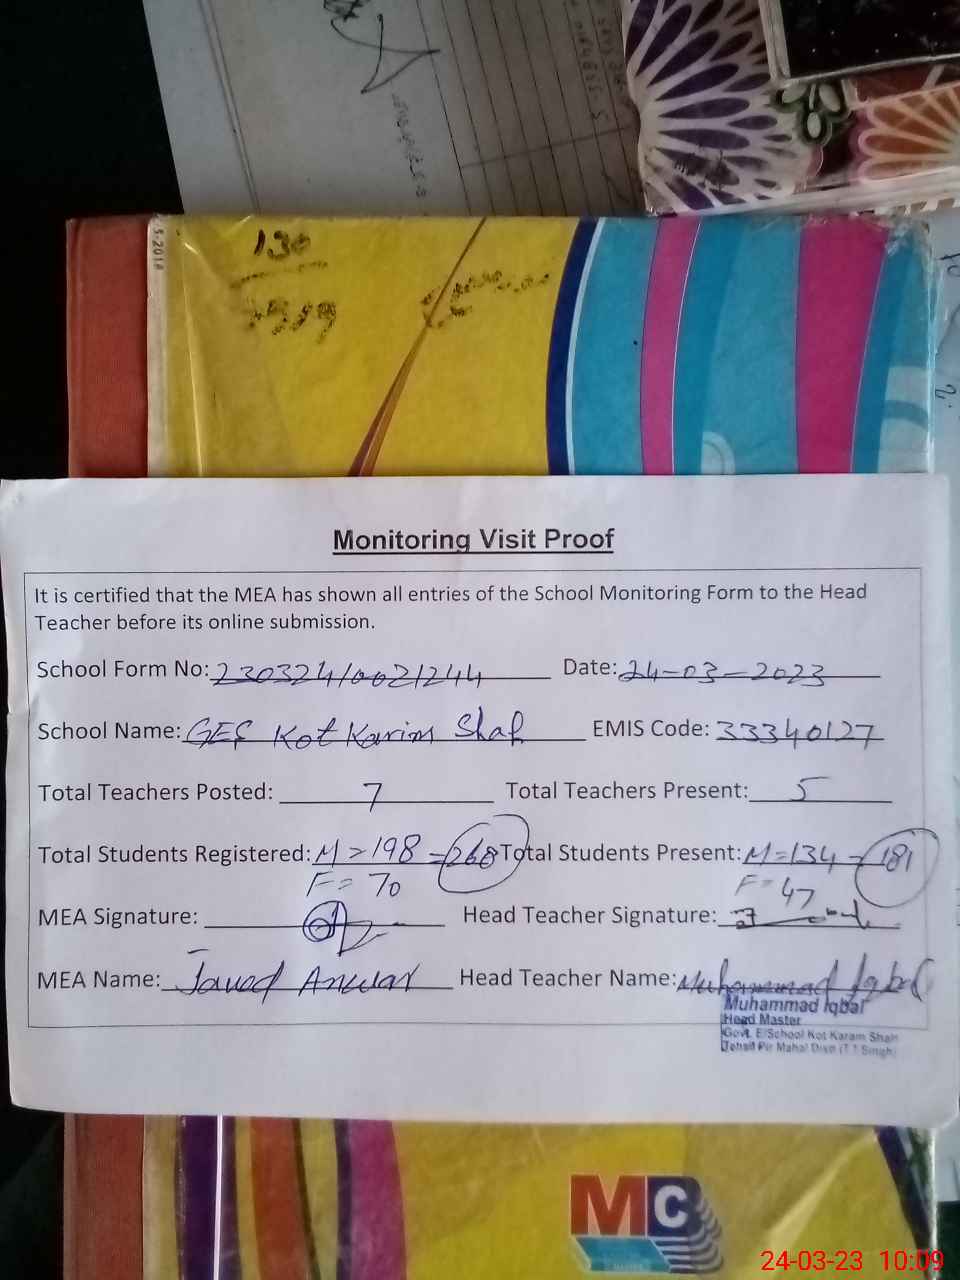 5-2018
130
Monitoring Visit Proof
It is certified that the MEA has shown all entries of the School Monitoring Form to the Head
Teacher before its online submission.
School Form No: 23032410021244 Date: 24-03-2023
School Name: GES Kot Karim Shah EMIS Code: 33340127
Total Teachers Posted: 7 Total Teachers Present: 5
Total Students Registered: M = 198 = 268 Total Students Present: M = 134 = 181
F = 70 F = 47
MEA Signature: Head Teacher Signature:
MEA Name: Javed Anwar Head Teacher Name: Muhammad Iqbal
Muhammad Iqbal
Head Master
Govt. E/School Kot Karam Shah
Tehsil Pir Mahal Distt (T.T Singh)
MC
24-03-23 10:09